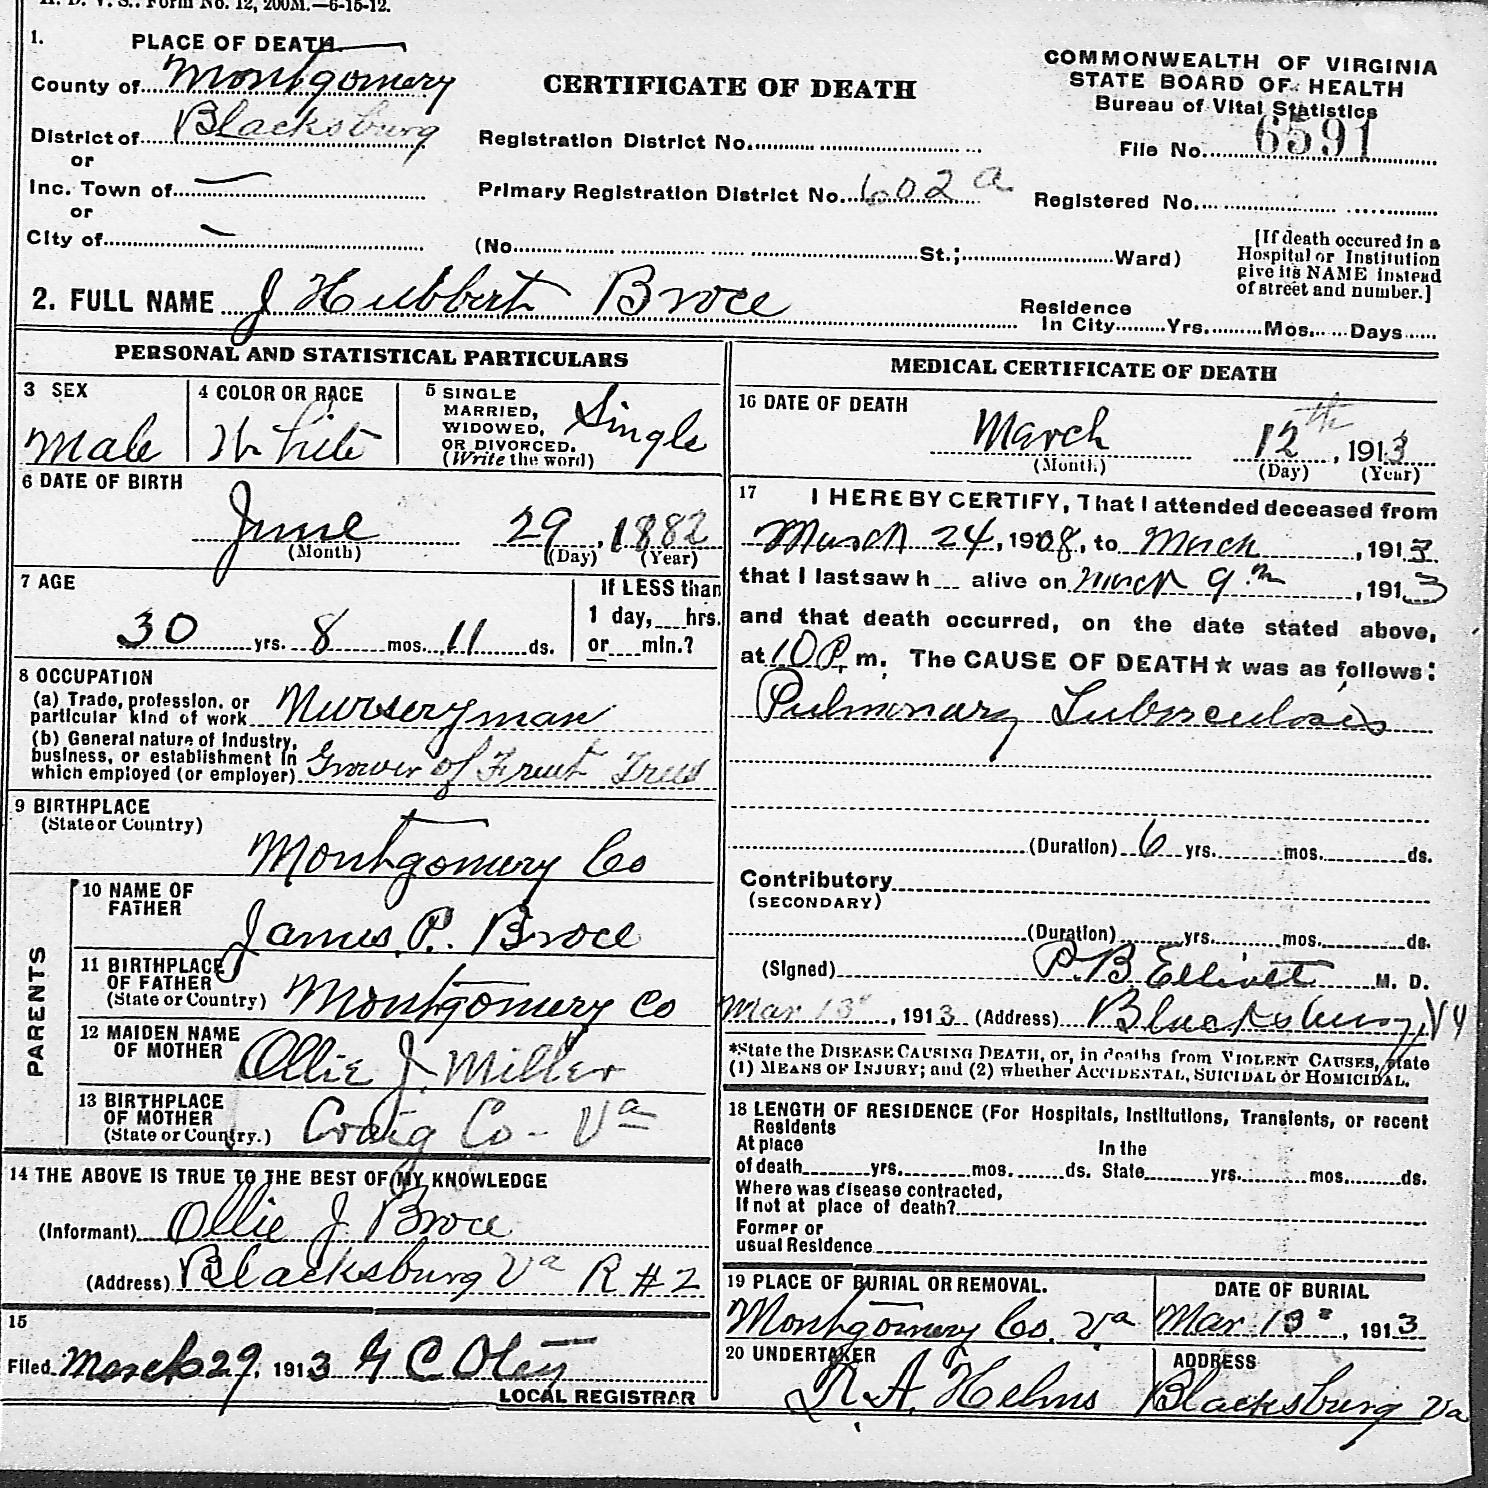 H. D. V. S.. Form No. 12, 200M.—6-15-12.
1. PLACE OF DEATH
County of Montgomery
District of Blacksburg
or
Inc. Town of —
or
City of —
CERTIFICATE OF DEATH
COMMONWEALTH OF VIRGINIA
STATE BOARD OF HEALTH
Bureau of Vital Statistics
File No. 6591
Registration District No.
Primary Registration District No. 602 a
Registered No.
(No. St.; Ward)
[If death occured in a
Hospital or Institution
give its NAME instead
of street and number.]
2. FULL NAME J Hubbert Broce
Residence
In City Yrs. Mos. Days
PERSONAL AND STATISTICAL PARTICULARS
3 SEX
Male
4 COLOR OR RACE
White
5 SINGLE
MARRIED,
WIDOWED,
OR DIVORCED.
(Write the word)
Single
6 DATE OF BIRTH
June 29, 1882
(Month) (Day) (Year)
7 AGE
30 yrs. 8 mos. 11 ds.
If LESS than
1 day, hrs.
or min.?
8 OCCUPATION
(a) Trade, profession, or
particular kind of work Nurseryman
(b) General nature of Industry,
business, or establishment in
which employed (or employer) Grower of Fruit Trees
9 BIRTHPLACE
(State or Country)
Montgomery Co
PARENTS
10 NAME OF
FATHER
James P. Broce
11 BIRTHPLACE
OF FATHER
(State or Country) Montgomery Co
12 MAIDEN NAME
OF MOTHER Ollie J. Miller
13 BIRTHPLACE
OF MOTHER
(State or Country.) Craig Co - Va
14 THE ABOVE IS TRUE TO THE BEST OF MY KNOWLEDGE
(Informant) Ollie J. Broce
(Address) Blacksburg Va R # 2
15
Filed March 29, 1913 G C Oley
LOCAL REGISTRAR
MEDICAL CERTIFICATE OF DEATH
16 DATE OF DEATH
March 12th, 1913
(Month) (Day) (Year)
17 I HEREBY CERTIFY, That I attended deceased from
March 24, 1908, to March, 1913
that I last saw h alive on March 9th, 1913
and that death occurred, on the date stated above,
at 10 P. m. The CAUSE OF DEATH* was as follows:
Pulmonary Tuberculosis
(Duration) 6 yrs. mos. ds.
Contributory
(SECONDARY)
(Duration) yrs. mos. ds.
(Signed) P. B Elliott M. D.
Mar 13, 1913 (Address) Blacksburg, Va
*State the DISEASE CAUSING DEATH, or, in deaths from VIOLENT CAUSES, state
(1) MEANS OF INJURY; and (2) whether ACCIDENTAL, SUICIDAL or HOMICIDAL.
18 LENGTH OF RESIDENCE (For Hospitals, Institutions, Transients, or recent
Residents
At place In the
of death yrs. mos. ds. State yrs. mos. ds.
Where was disease contracted,
If not at place of death?
Former or
usual Residence
19 PLACE OF BURIAL OR REMOVAL.
Montgomery Co. Va
DATE OF BURIAL
Mar 13, 1913
20 UNDERTAKER
R. A. Helms
ADDRESS
Blacksburg Va